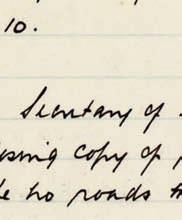 10.
Secretary of
using copy of
no roads